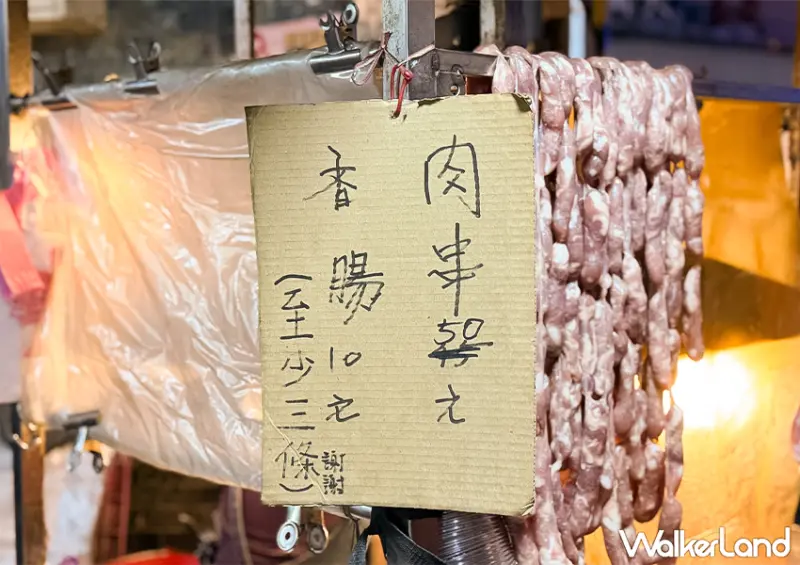 肉串50元
香腸10元
(至少三條)
謝謝
WalkerLand